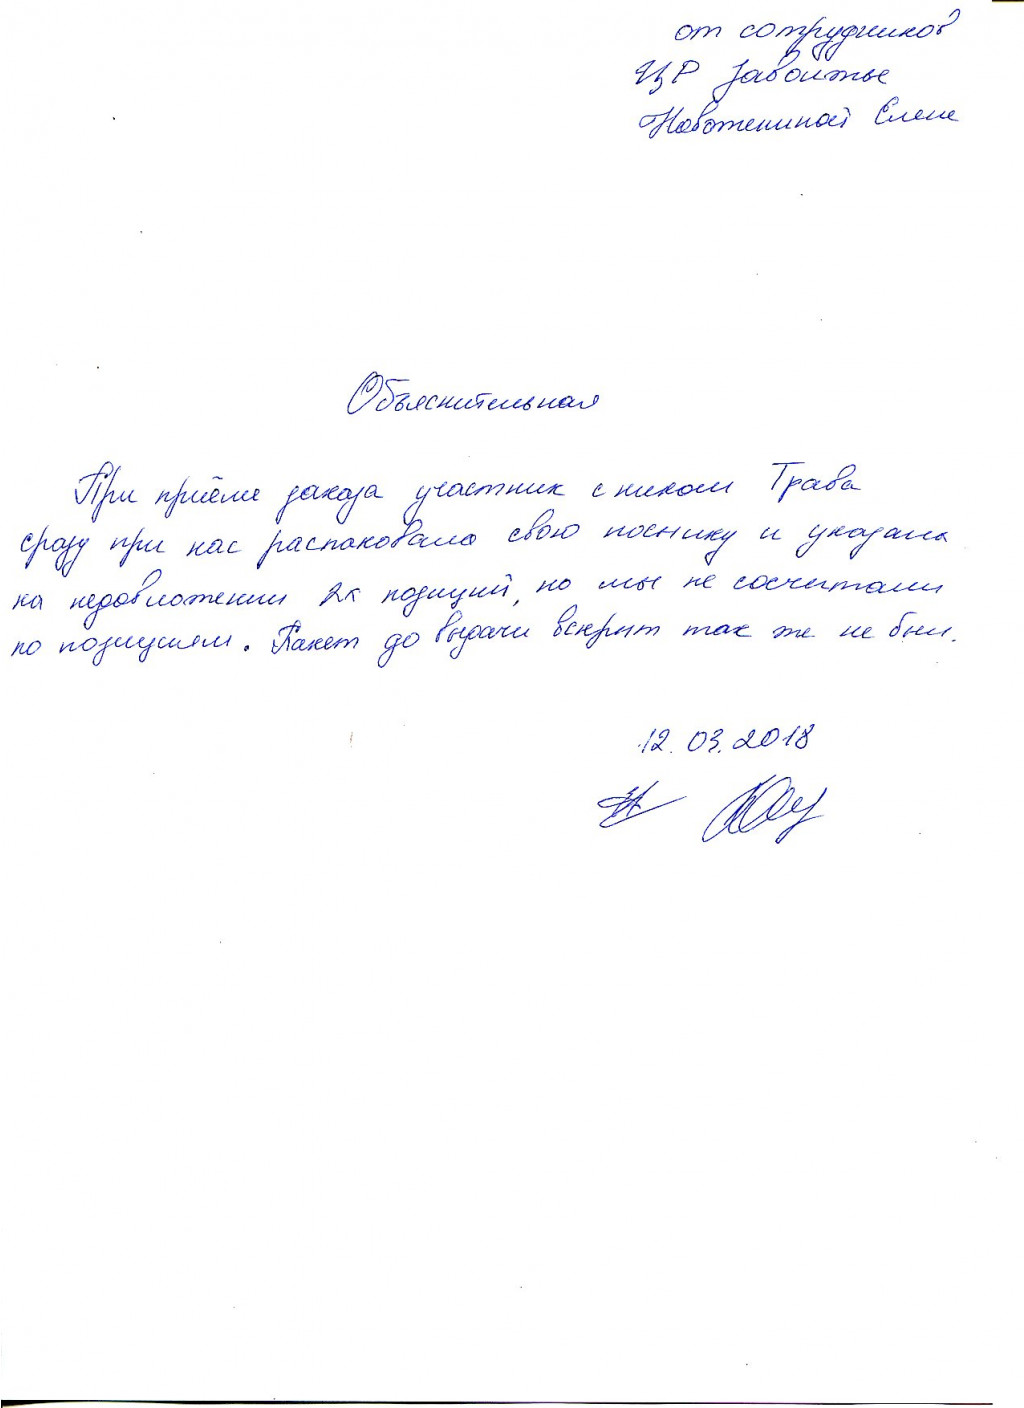 от сотрудников
ЦР Заволжье
Новожениной Елене
Объяснительная
При приёме заказа участник с ником Трава
сразу при нас распаковала свою посылку и указала
на недовложении 2х позиций, но мы не сосчитали
по позициям. Пакет до выдачи вскрыт так же не был.
12.03.2018